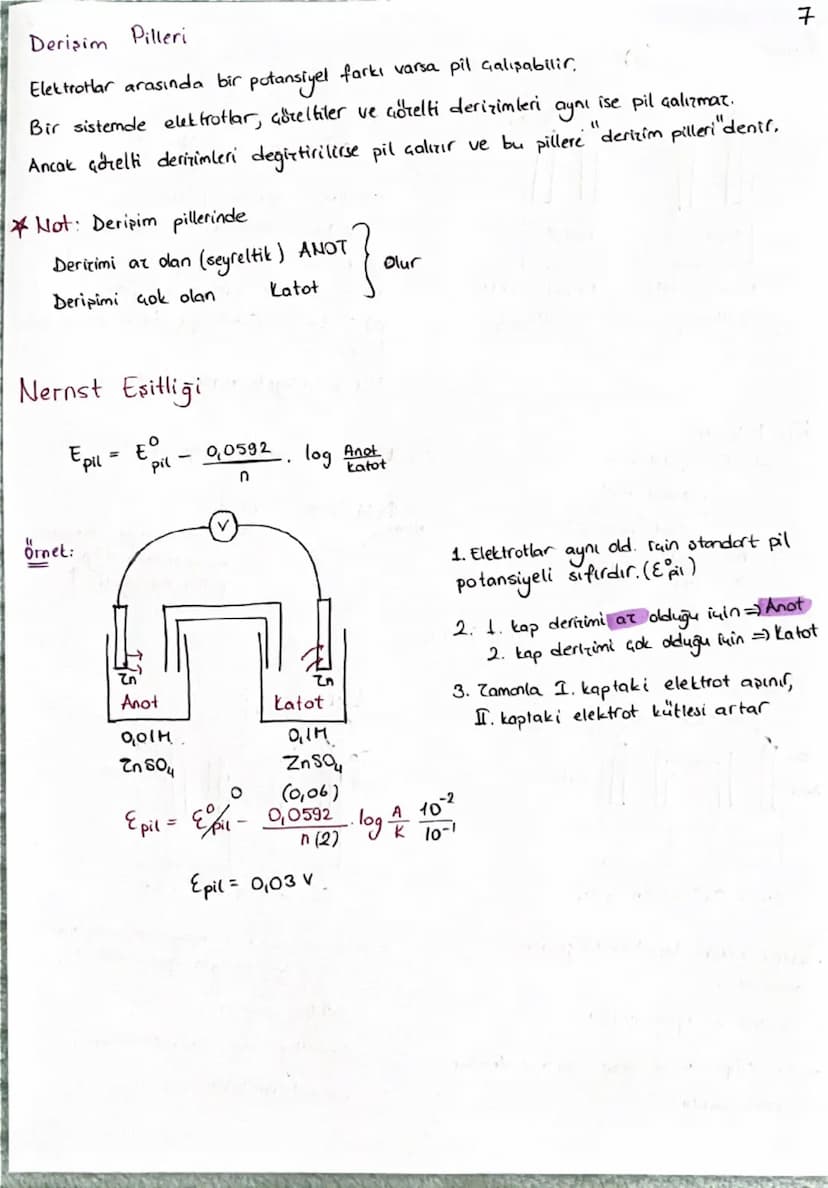 7
Derişim Pilleri
Elektrotlar arasında bir potansiyel farkı varsa pil çalışabilir.
Bir sistemde elektrotlar, çözeltiler ve çözelti derişimleri aynı ise pil çalışmaz.
Ancak çözelti derişimleri değiştirilirse pil çalışır ve bu pillere "derişim pilleri" denir.
* Not: Derişim pillerinde
Derişimi az olan (seyreltik) ANOT
Derişimi çok olan Katot
} Olur
Nernst Eşitliği
E pil = E⁰ pil - 0,0592/n . log Anot/Katot
Örnek:
V
Zn Zn
Anot Katot
0,01M 0,1M
ZnSO₄ ZnSO₄
1. Elektrotlar aynı old. için standart pil
potansiyeli sıfırdır. (E⁰pil)
2. 1. kap derişimi az olduğu için => Anot
2. kap derişimi çok olduğu için => Katot
3. Zamanla I. kaptaki elektrot aşınır,
II. kaptaki elektrot kütlesi artar
0 (0,06)
E pil = E⁰ pil - 0,0592/n (2) . log A/K 10⁻²/10⁻¹
E pil = 0,03 V.